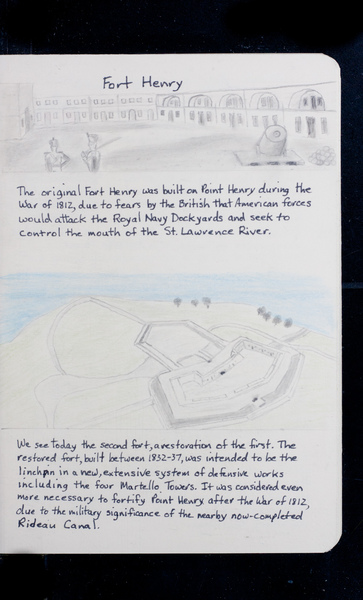 Fort Henry
The original Fort Henry was built on Point Henry during the
War of 1812, due to fears by the British that American forces
would attack the Royal Navy Dockyards and seek to
control the mouth of the St. Lawrence River.
We see today the second fort, a restoration of the first. The
restored fort, built between 1832-37, was intended to be the
linchpin in a new, extensive system of defensive works
including the four Martello Towers. It was considered even
more necessary to fortify Point Henry after the War of 1812,
due to the military significance of the nearby now-completed
Rideau Canal.